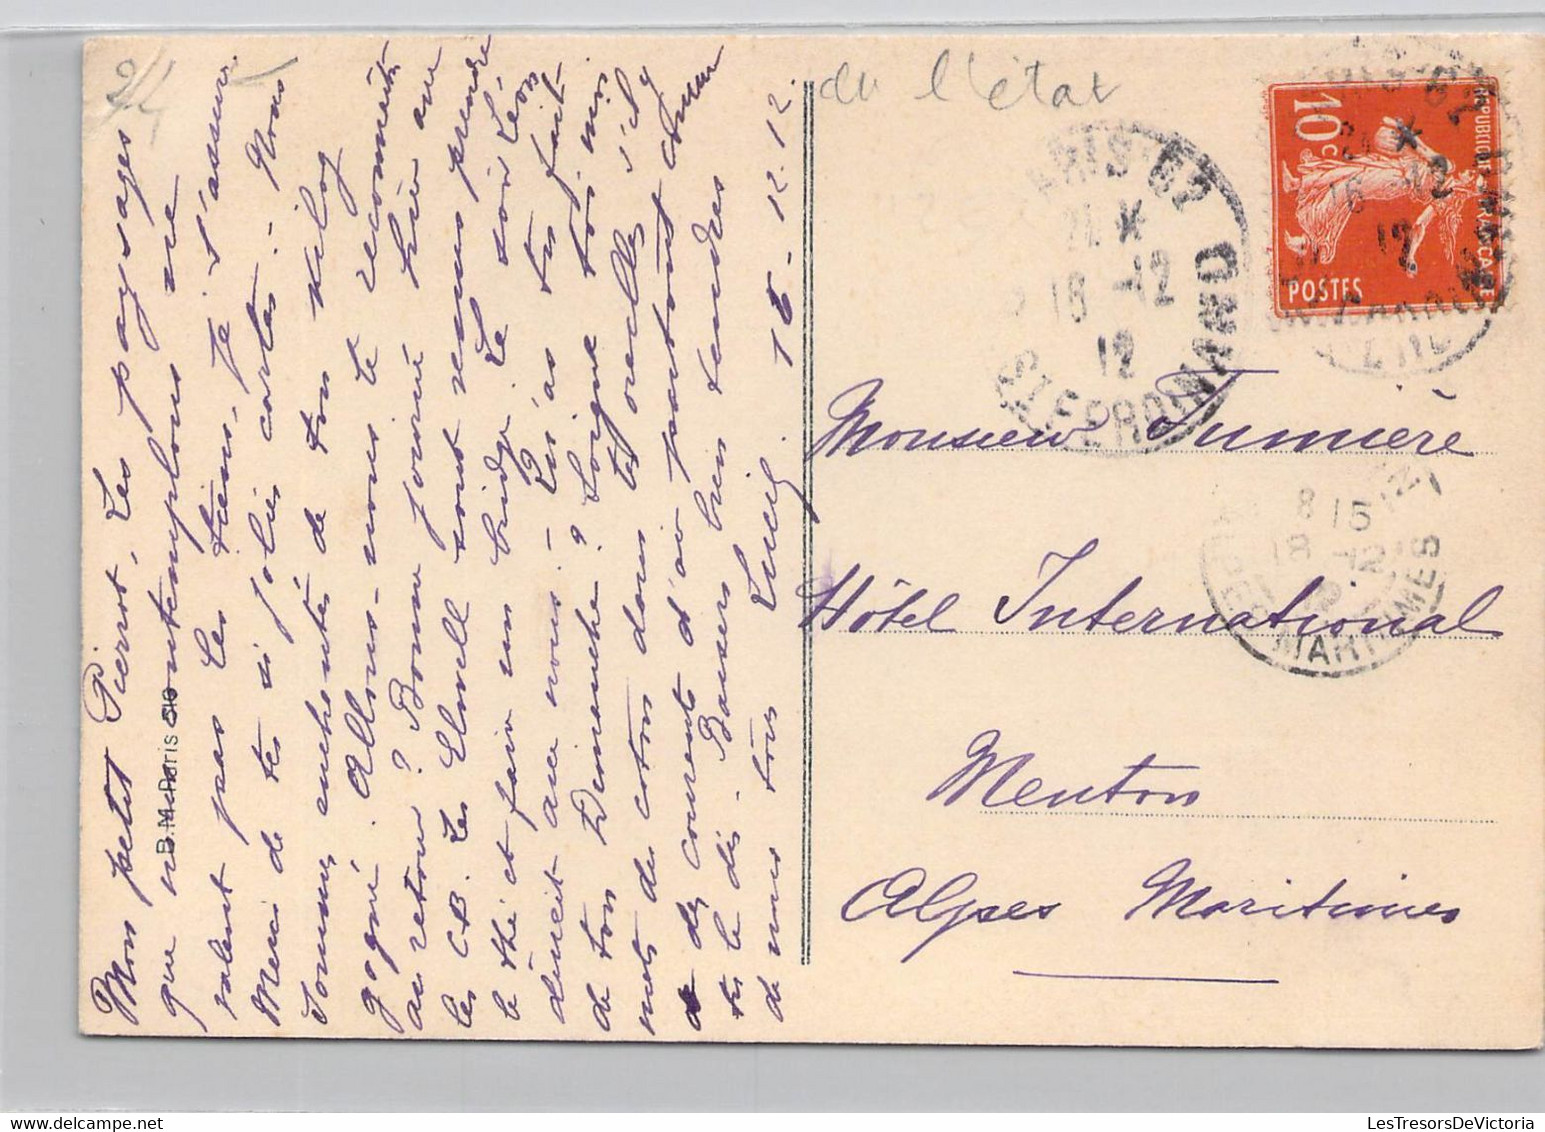 Mon petit Pierrot, Les paysages
que nous contemplons ne
valent pas les tiens, je t'assure.
Merci de tes si jolies cartes. - Nous
sommes enchantés de ton kilog
gagné. Allons-nous te reconnaître
au retour ? Bonne journée hier avec
les CB. Les Elwell sont venus prendre
le thé et faire un bridge. Le soir Léon
dînait avec nous. - Qu'as tu fait
de ton Dimanche ? Soigne toi, mon
mets du coton dans tes oreilles s'il y
a des courants d'air partout comme
tu le dis. - Baisers bien tendres
de nous tous Lucie. 16. 12. 12.
B.M. Paris 516
2/4
du l'état
REPUBLIQUE FRANÇAISE
10c
POSTES
PARIS 62
21 *
16 -12
12
ST FERDINAND
PARIS 62
21 *
16 -12
12
Monsieur Tumière
Hôtel International
Menton
Alpes Maritimes
8 15
18 -12
12
ALPES MARITIMES
LesTresorsDeVictoria